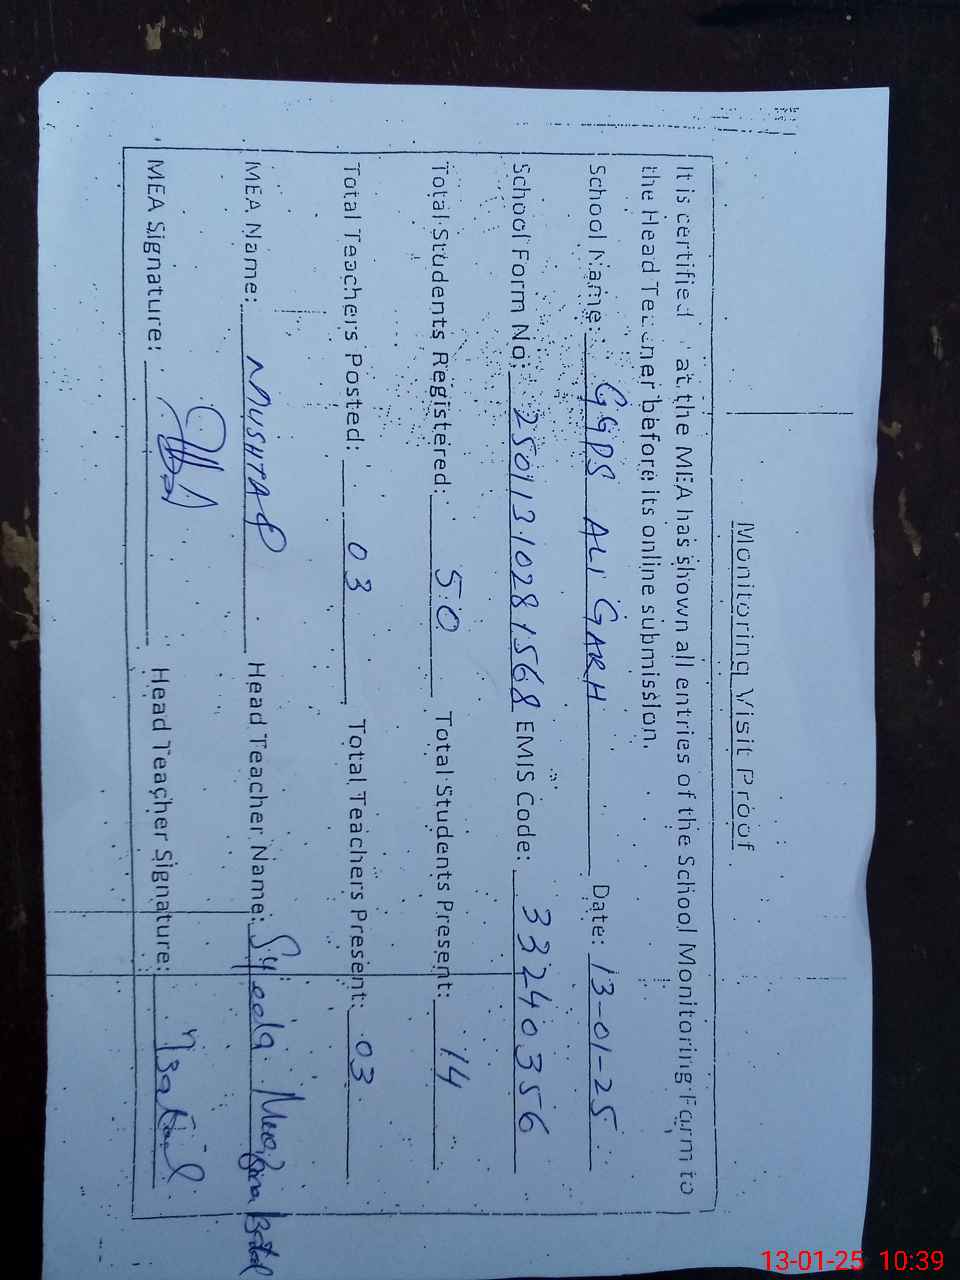 Monitoring Visit Proof
It is certified at the MEA has shown all entries of the School Monitoring Form to
the Head Teacher before its online submission.
School Name: GGPS ALI GARH Date: 13-01-25
School Form No: 25011310281568 EMIS Code: 33240356
Total Students Registered: 50 Total Students Present: 14
Total Teachers Posted: 03 Total Teachers Present: 03
MEA Name: MUSHTAQ Head Teacher Name: Syeeda
MEA Signature: Head Teacher Signature:
13-01-25 10:39